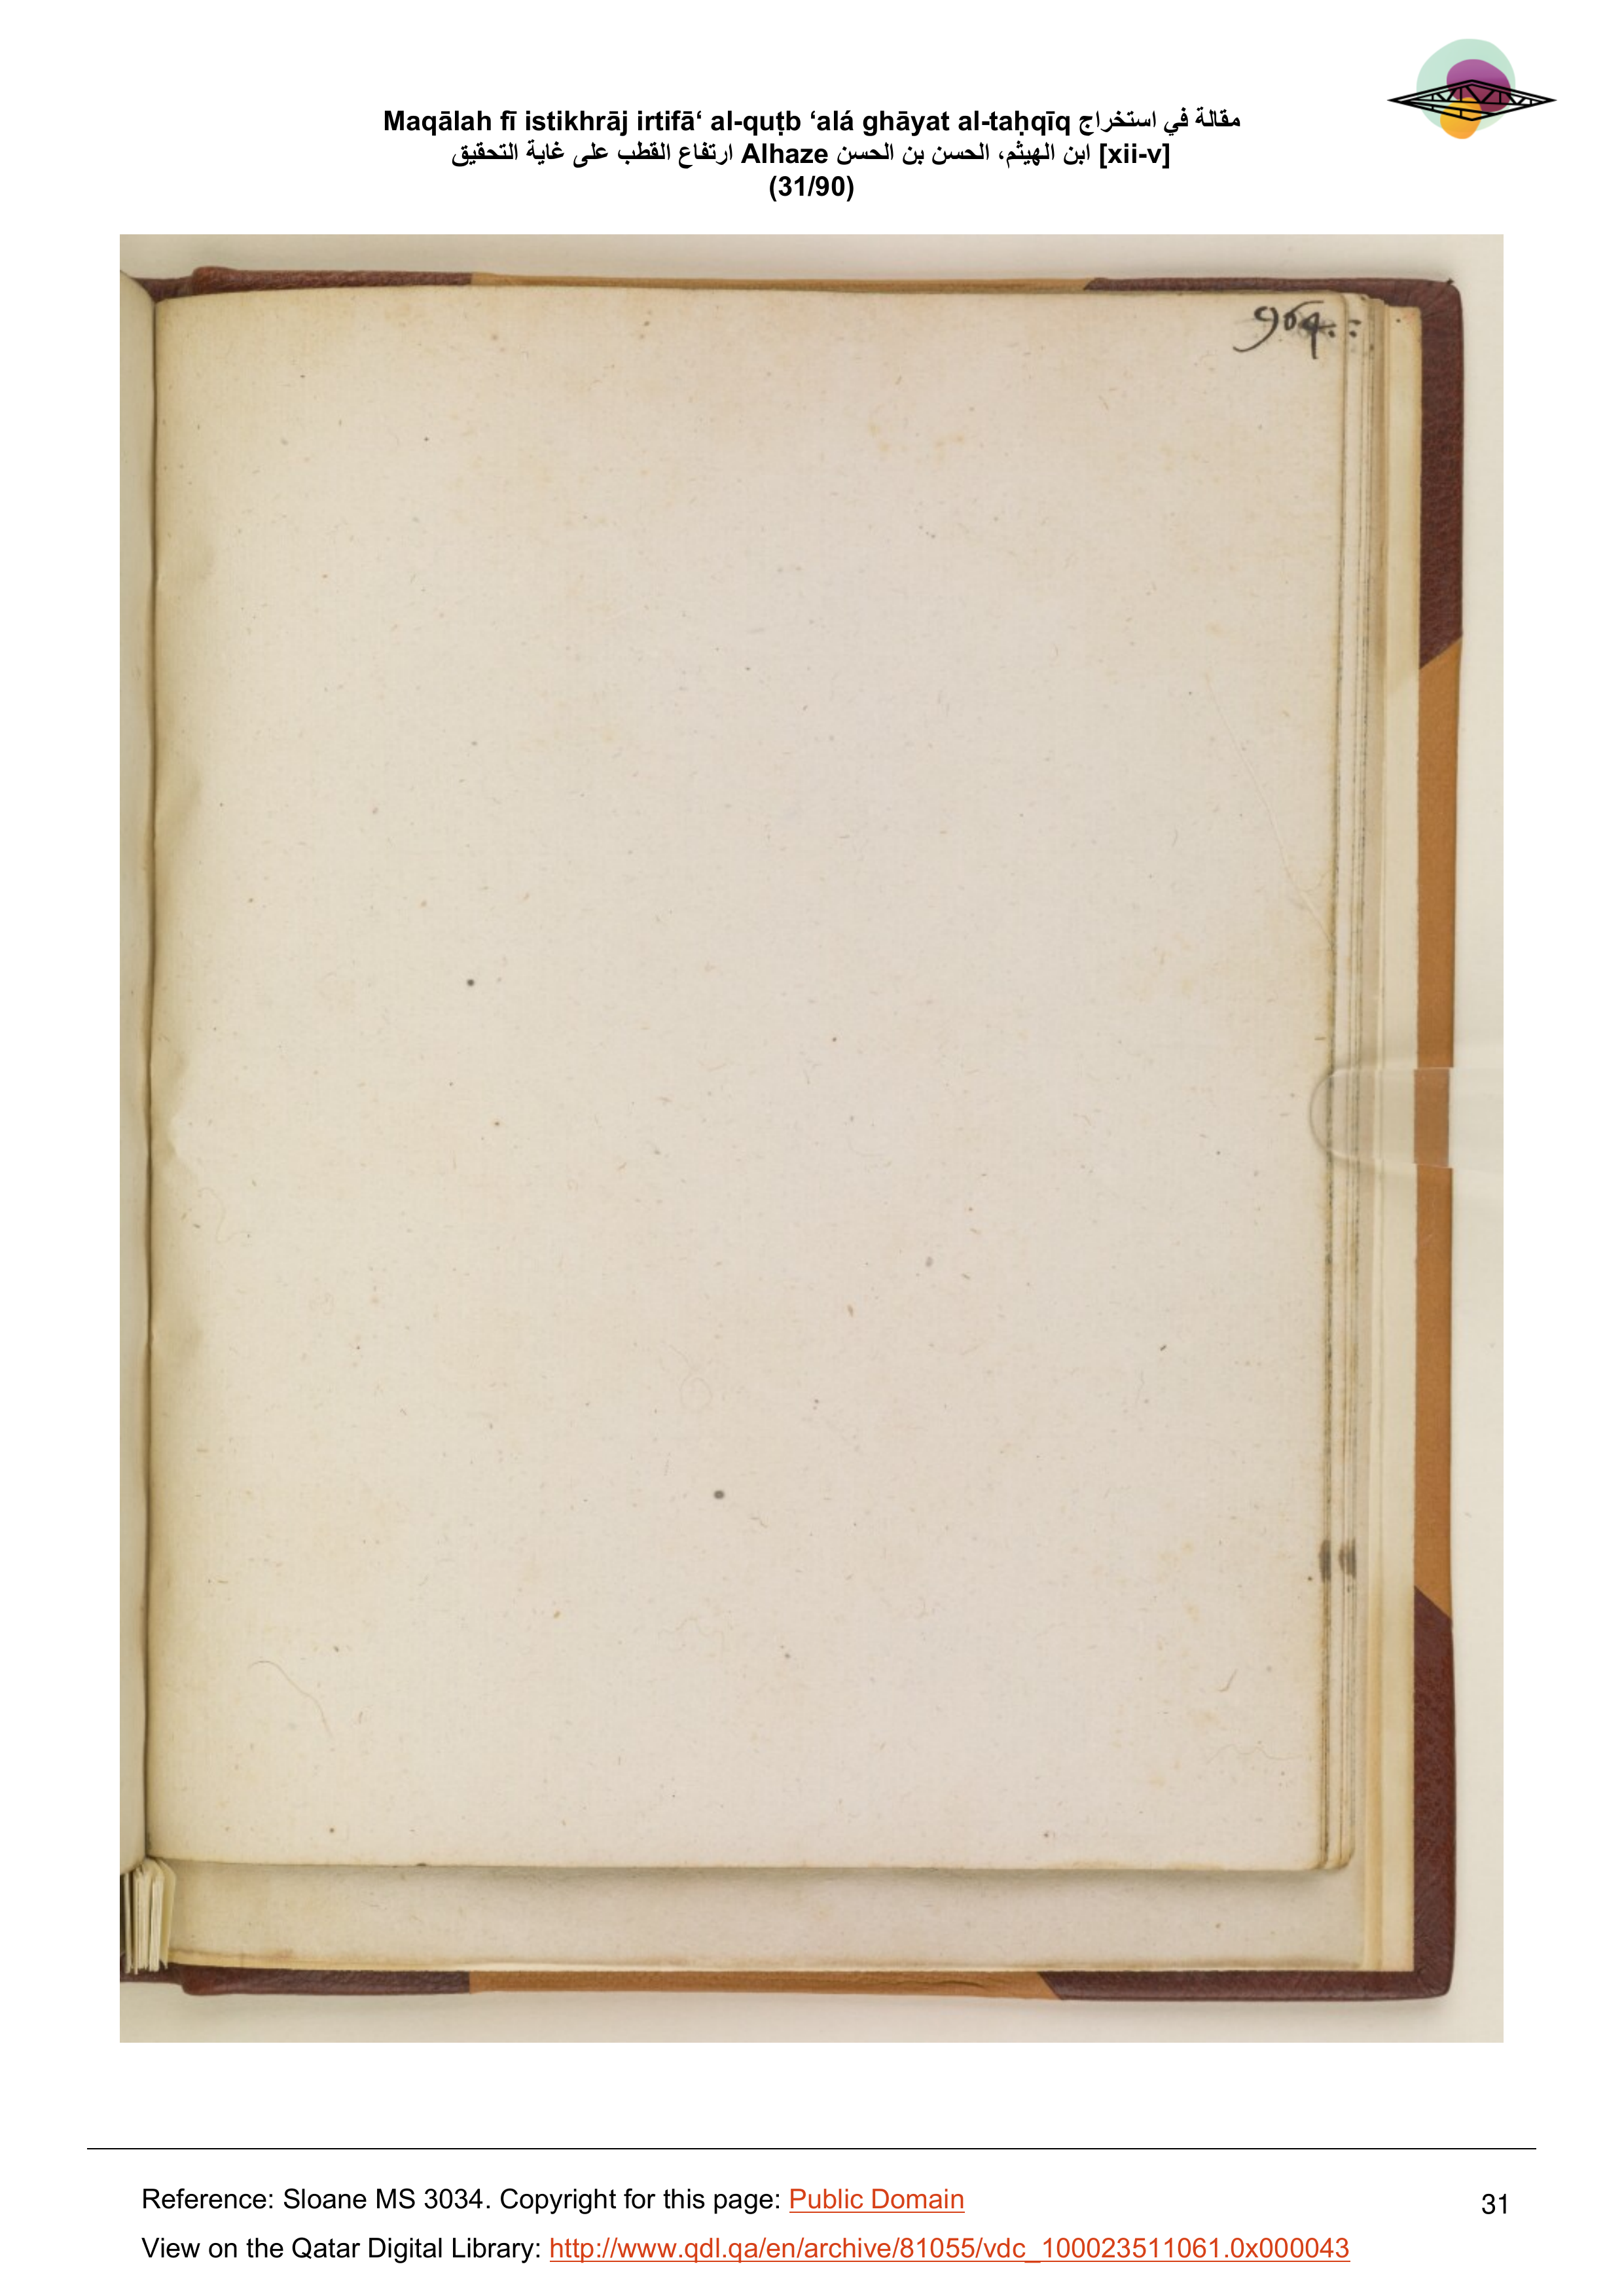 Maqālah fī istikhrāj irtifā‘ al-quṭb ‘alá ghāyat al-taḥqīq مقالة في استخراج
ارتفاع القطب على غاية التحقيق Alhaze ابن الهيثم، الحسن بن الحسن [xii-v]
(31/90)
964.:
Reference: Sloane MS 3034. Copyright for this page: Public Domain
31
View on the Qatar Digital Library: http://www.qdl.qa/en/archive/81055/vdc_100023511061.0x000043